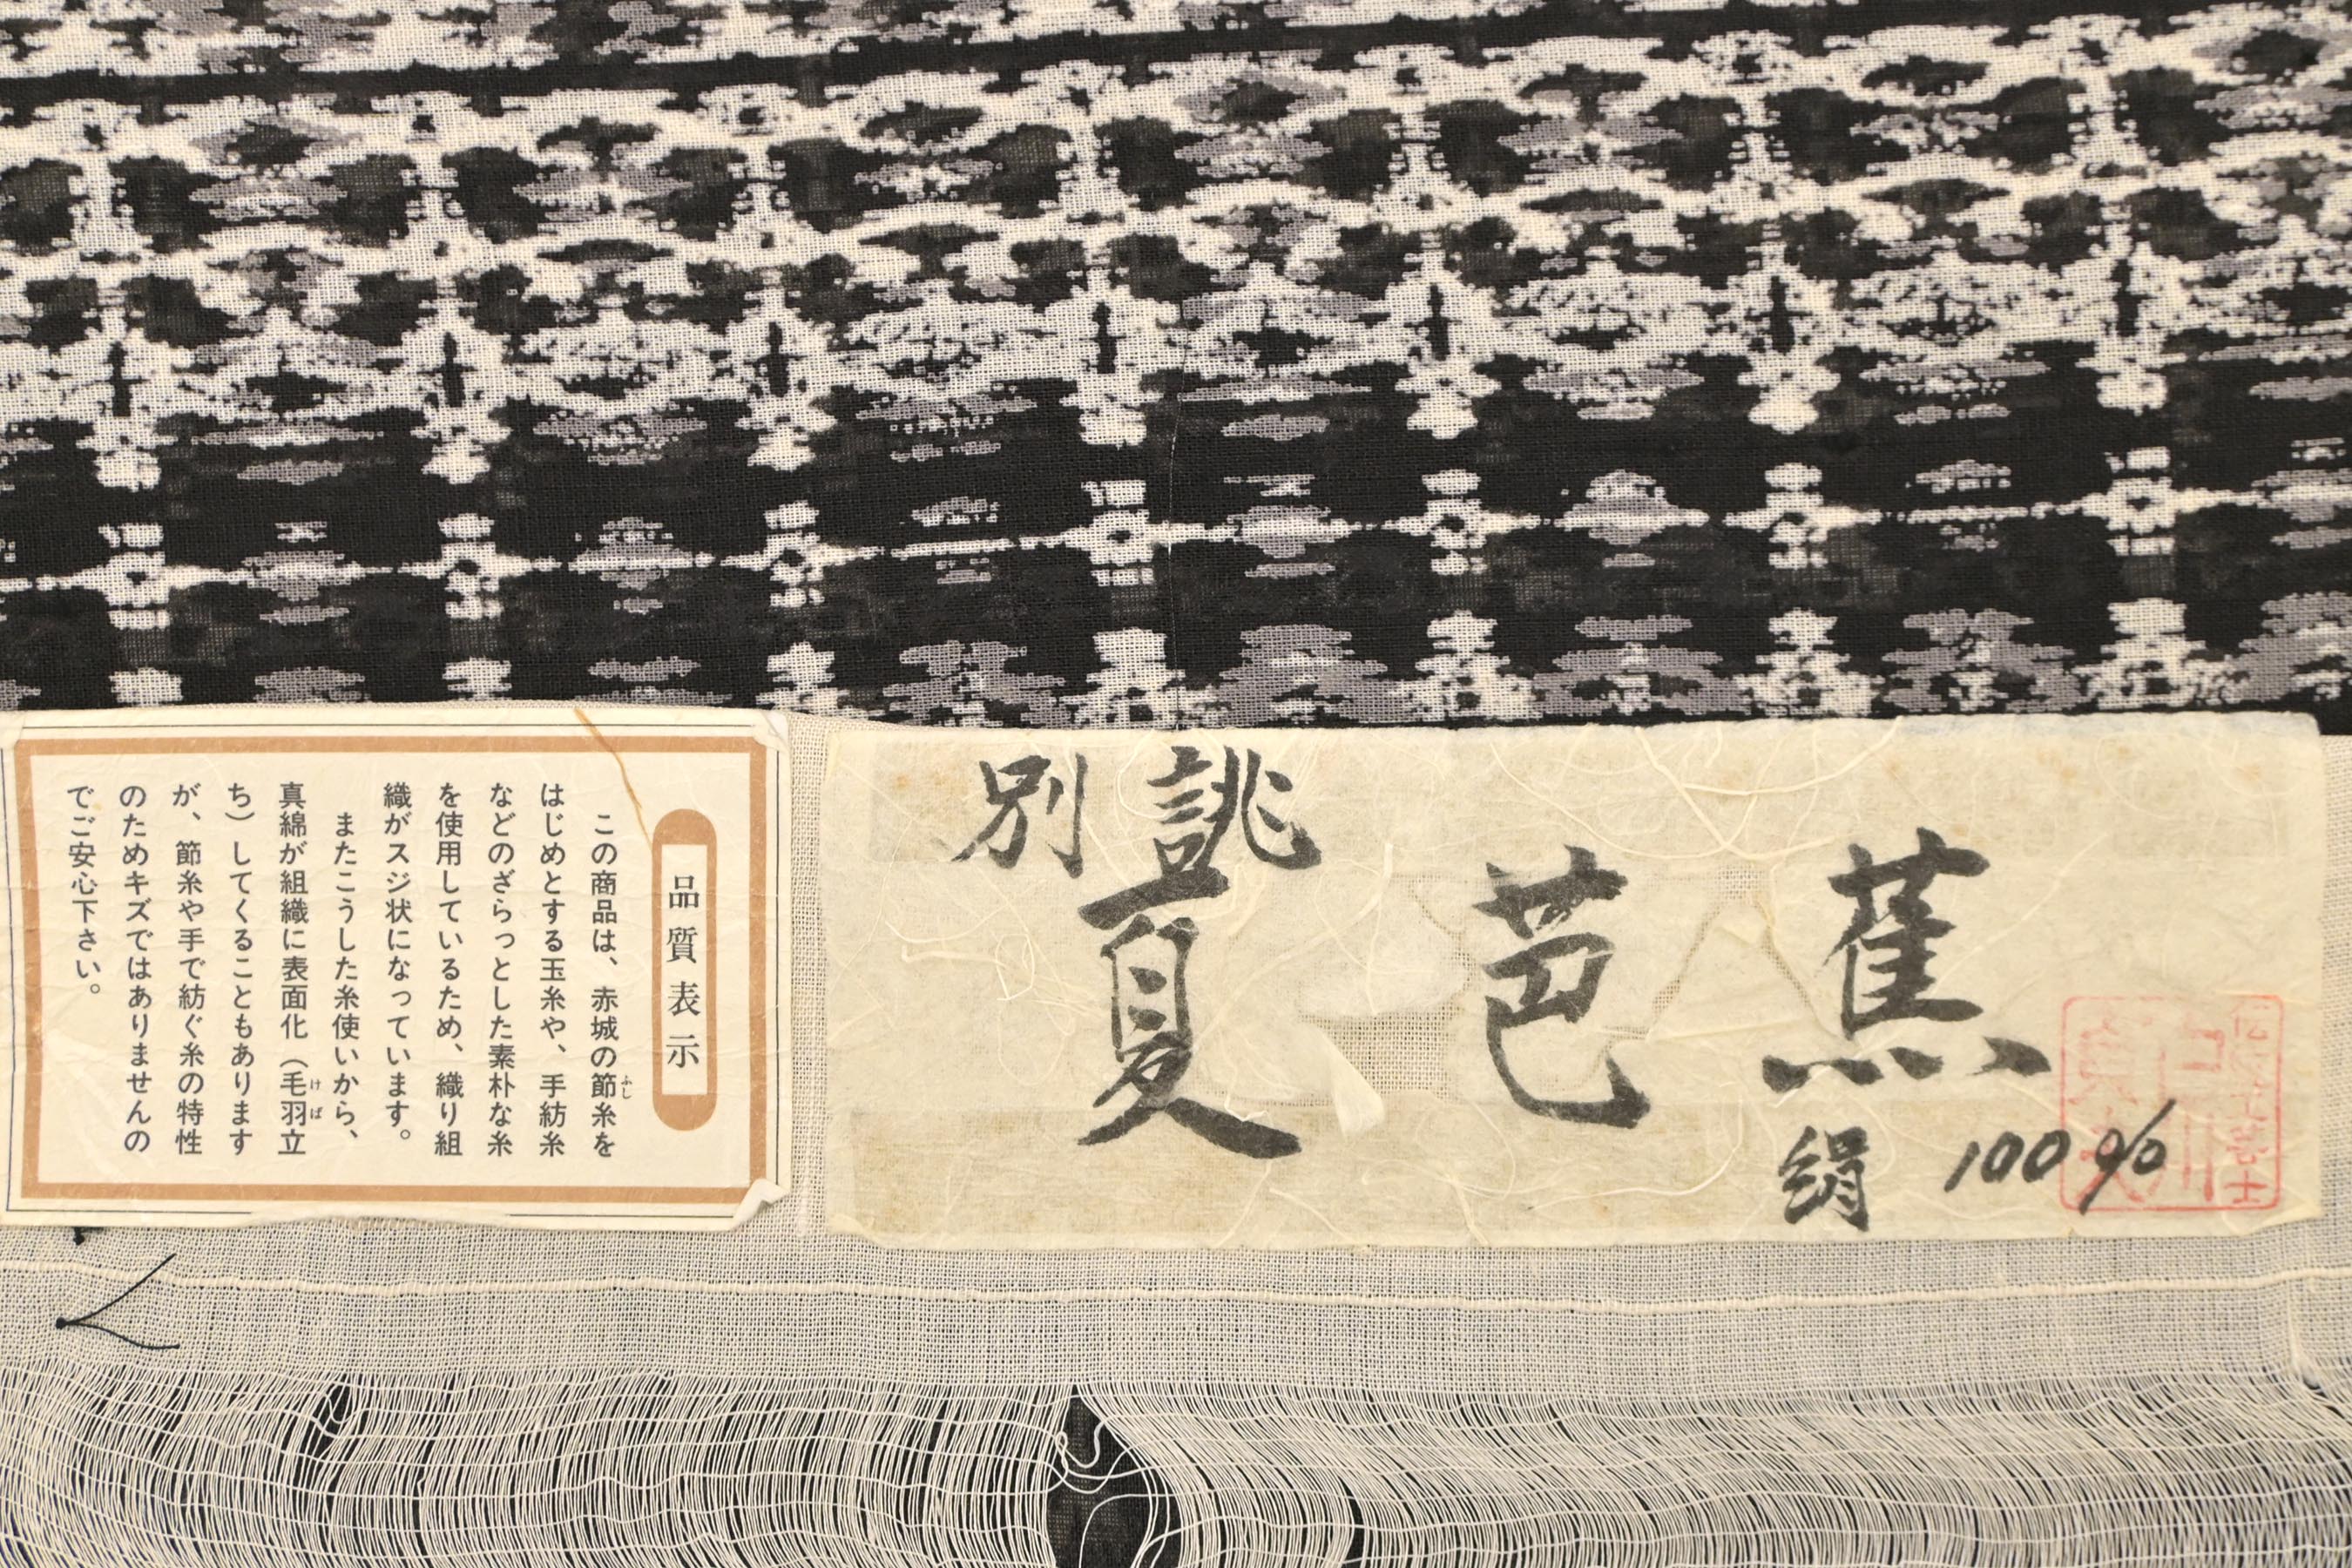 品質表示
この商品は、赤城の節糸を
ふし
はじめとする玉糸や、手紡糸
などのざらっとした素朴な糸
を使用しているため、織り組
織がスジ状になっています。
またこうした糸使いから、
真綿が組織に表面化（毛羽立
けば
ち）してくることもあります
が、節糸や手で紡ぐ糸の特性
のためキズではありませんの
でご安心下さい。
別誂
夏芭蕉
絹 100%